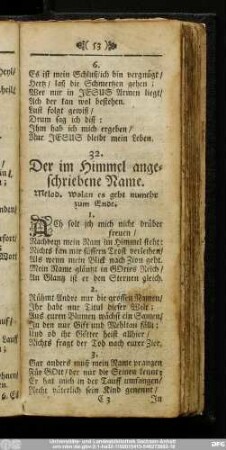 53
6.
Es ist mein Schluß/ich bin vergnügt/
Hertz/ laß die Schmertzen gehen;
Wer nur in JESUS Armen liegt/
Ach der kan wol bestehen.
Lust folget gewiß/
Drum sag ich diß:
Ihm hab ich mich ergeben/
Nur JESUS bleibt mein Leben.
32.
Der im Himmel ange-
schriebene Name.
Melod. Wolan es geht nunmehr
zum Ende.
1.
ACh solt ich mich nicht drüber
freuen/
Nachdem mein Nam im Himmel steht;
Nichts kan mir süssern Trost verleihen/
Als wenn mein Blick nach Zion geht.
Mein Name gläntzt in GOttes Reich/
Im Glantz ist er den Sternen gleich.
2.
Rühmt Andre nur die grossen Namen/
Ihr habt nur Titul dieser Welt:
Aus euren Blumen wächst ein Samen/
In den nur Gifft und Mehltau fällt:
Und ob ihr Götter heist allhier
Nichts fragt der Tod nach eurer Zier.
3.
Gar anders muß mein Name prangen
Für GOtt/ der nur die Seinen kennt;
Er hat mich in der Tauff umfangen/
Recht väterlich sein Kind genennt/
C 3 In